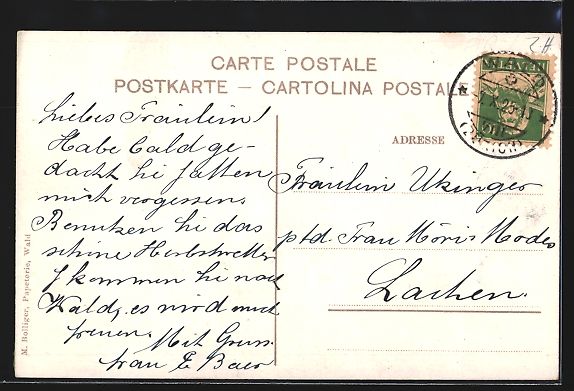 CARTE POSTALE
POSTKARTE – CARTOLINA POSTALE
ADRESSE
Liebes Fräulein!
Habe bald ge-
dacht Sie hätten
mich vergessen.
Benutzen Sie das
schöne Herbstwetter
& kommen Sie nach
Wald, es wird mich
freuen.
Mit Gruss
Frau E Baer
Fräulein Ukinger
ptd. Frau Nöri Modes
Lachen.
M. Bolliger, Papeterie, Wald
HELVETIA